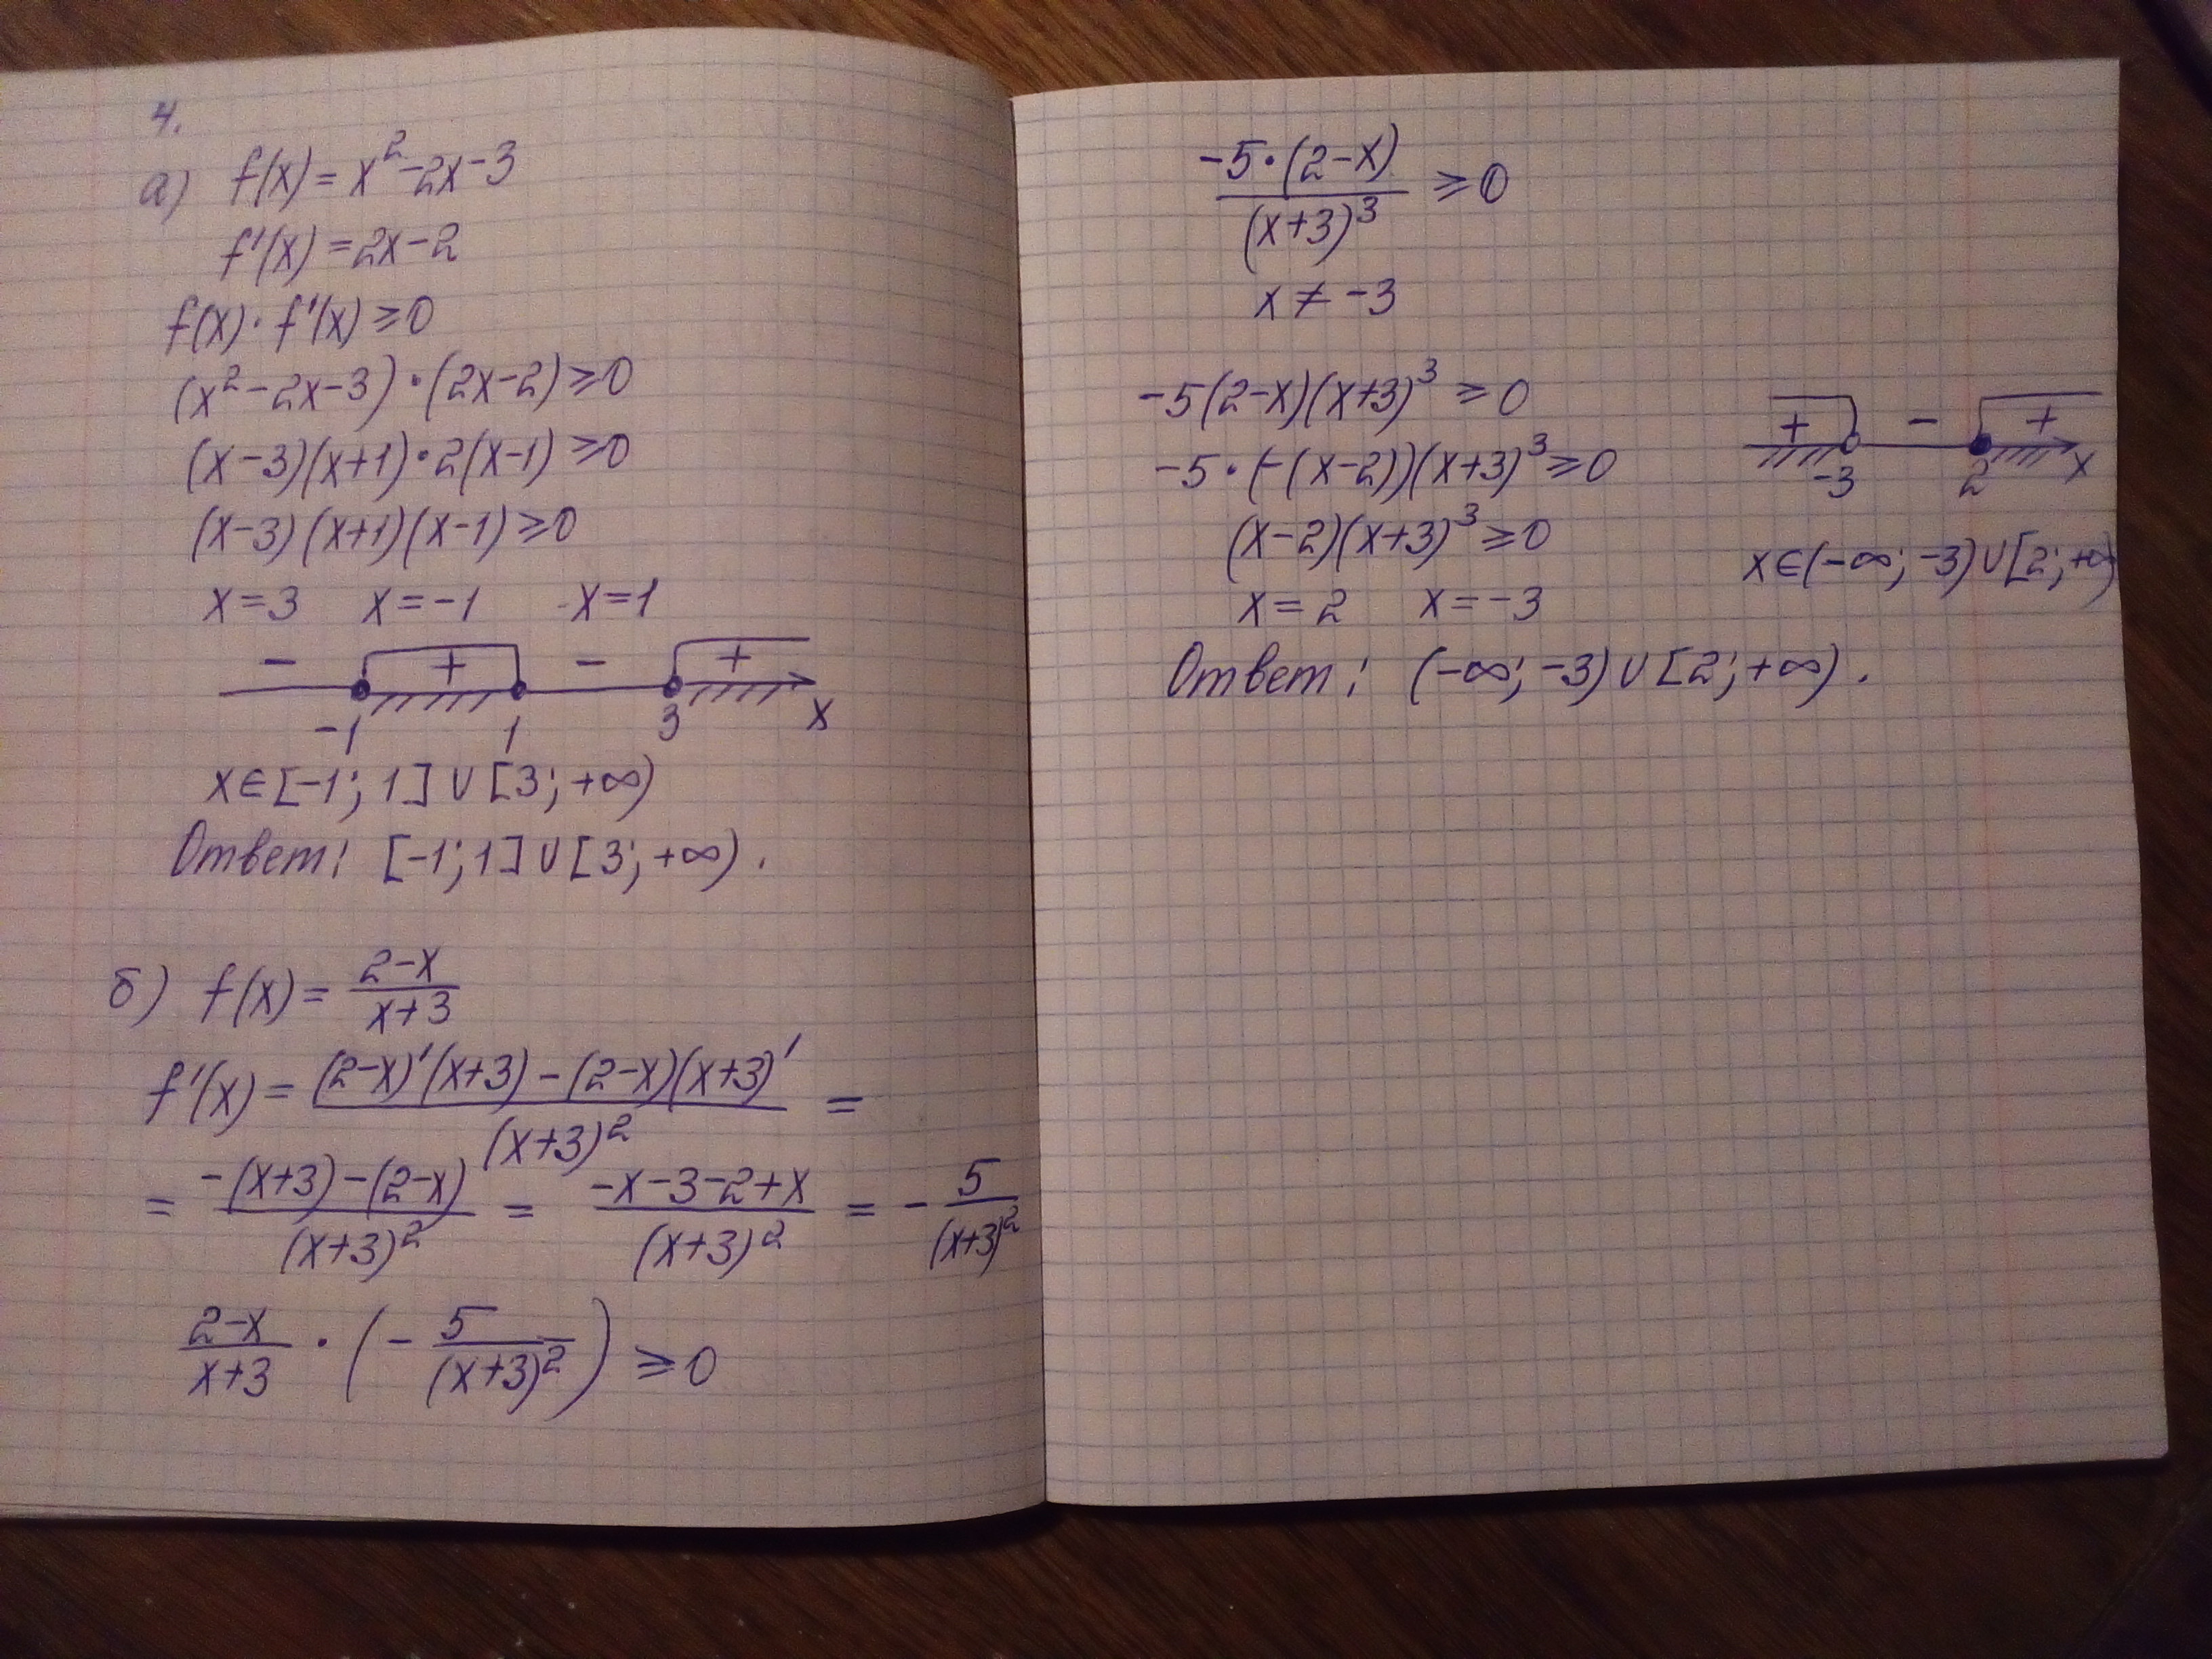 4.
а) f(x) = x² - 2x - 3
f'(x) = 2x - 2
f(x) · f'(x) ≥ 0
(x² - 2x - 3) · (2x - 2) ≥ 0
(x - 3)(x + 1) · 2(x - 1) ≥ 0
(x - 3)(x + 1)(x - 1) ≥ 0
x = 3 x = -1 x = 1
- + - +
-1 1 3 x
x ∈ [-1; 1] ∪ [3; +∞)
Ответ: [-1; 1] ∪ [3; +∞).
б) f(x) = (2-x)/(x+3)
f'(x) = ((2-x)'(x+3) - (2-x)(x+3)')/(x+3)² =
= (-(x+3) - (2-x))/(x+3)² = (-x-3-2+x)/(x+3)² = - 5/(x+3)²
(2-x)/(x+3) · (- 5/(x+3)²) ≥ 0
(-5 · (2-x))/(x+3)³ ≥ 0
x ≠ -3
-5(2-x)(x+3)³ ≥ 0
-5 · (-(x-2))(x+3)³ ≥ 0
(x-2)(x+3)³ ≥ 0
x = 2 x = -3
+ - +
-3 2 x
x ∈ (-∞; -3) ∪ [2; +∞)
Ответ: (-∞; -3) ∪ [2; +∞).